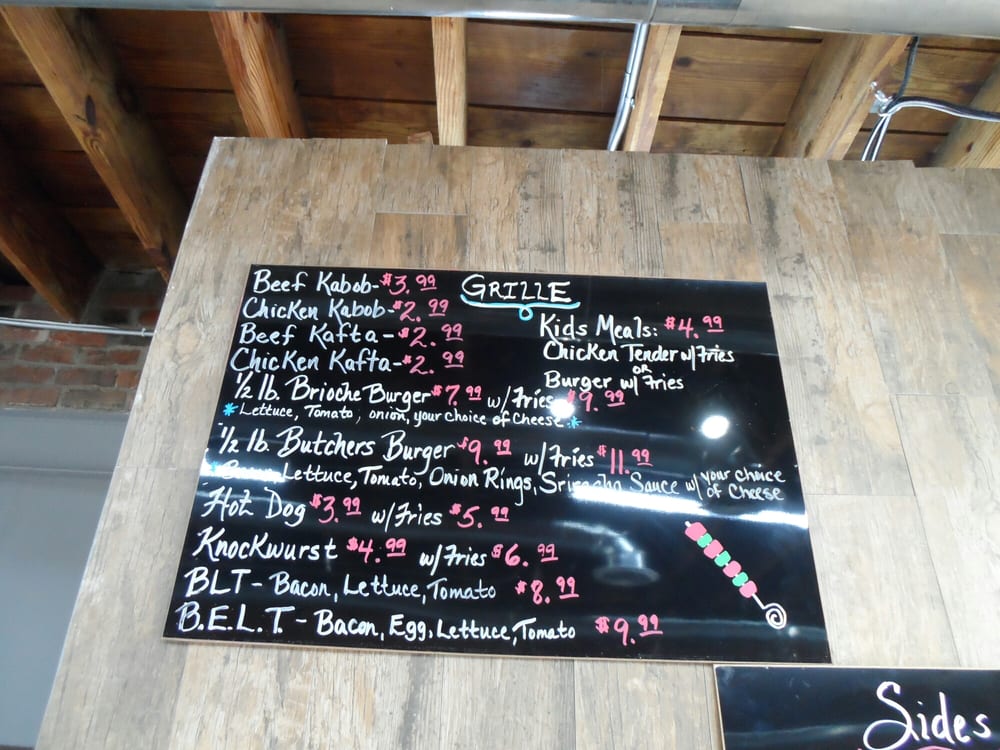 GRILLE
Beef Kabob - $3.99
Chicken Kabob - $2.99
Beef Kafta - $2.99
Chicken Kafta - $2.99
Kids Meals: $4.99
Chicken Tender w/Fries
OR
Burger w/ Fries
1/2 lb. Brioche Burger $7.99 w/ Fries $9.99
* Lettuce, Tomato, onion, your choice of cheese *
1/2 lb. Butchers Burger $9.99 w/Fries $11.99
* Bacon, Lettuce, Tomato, Onion Rings, Sriracha Sauce w/ your choice of Cheese
Hot Dog $3.99 w/Fries $5.99
Knockwurst $4.99 w/Fries $6.99
BLT - Bacon, Lettuce, Tomato $8.99
B.E.L.T. - Bacon, Egg, Lettuce, Tomato $9.99
Sides